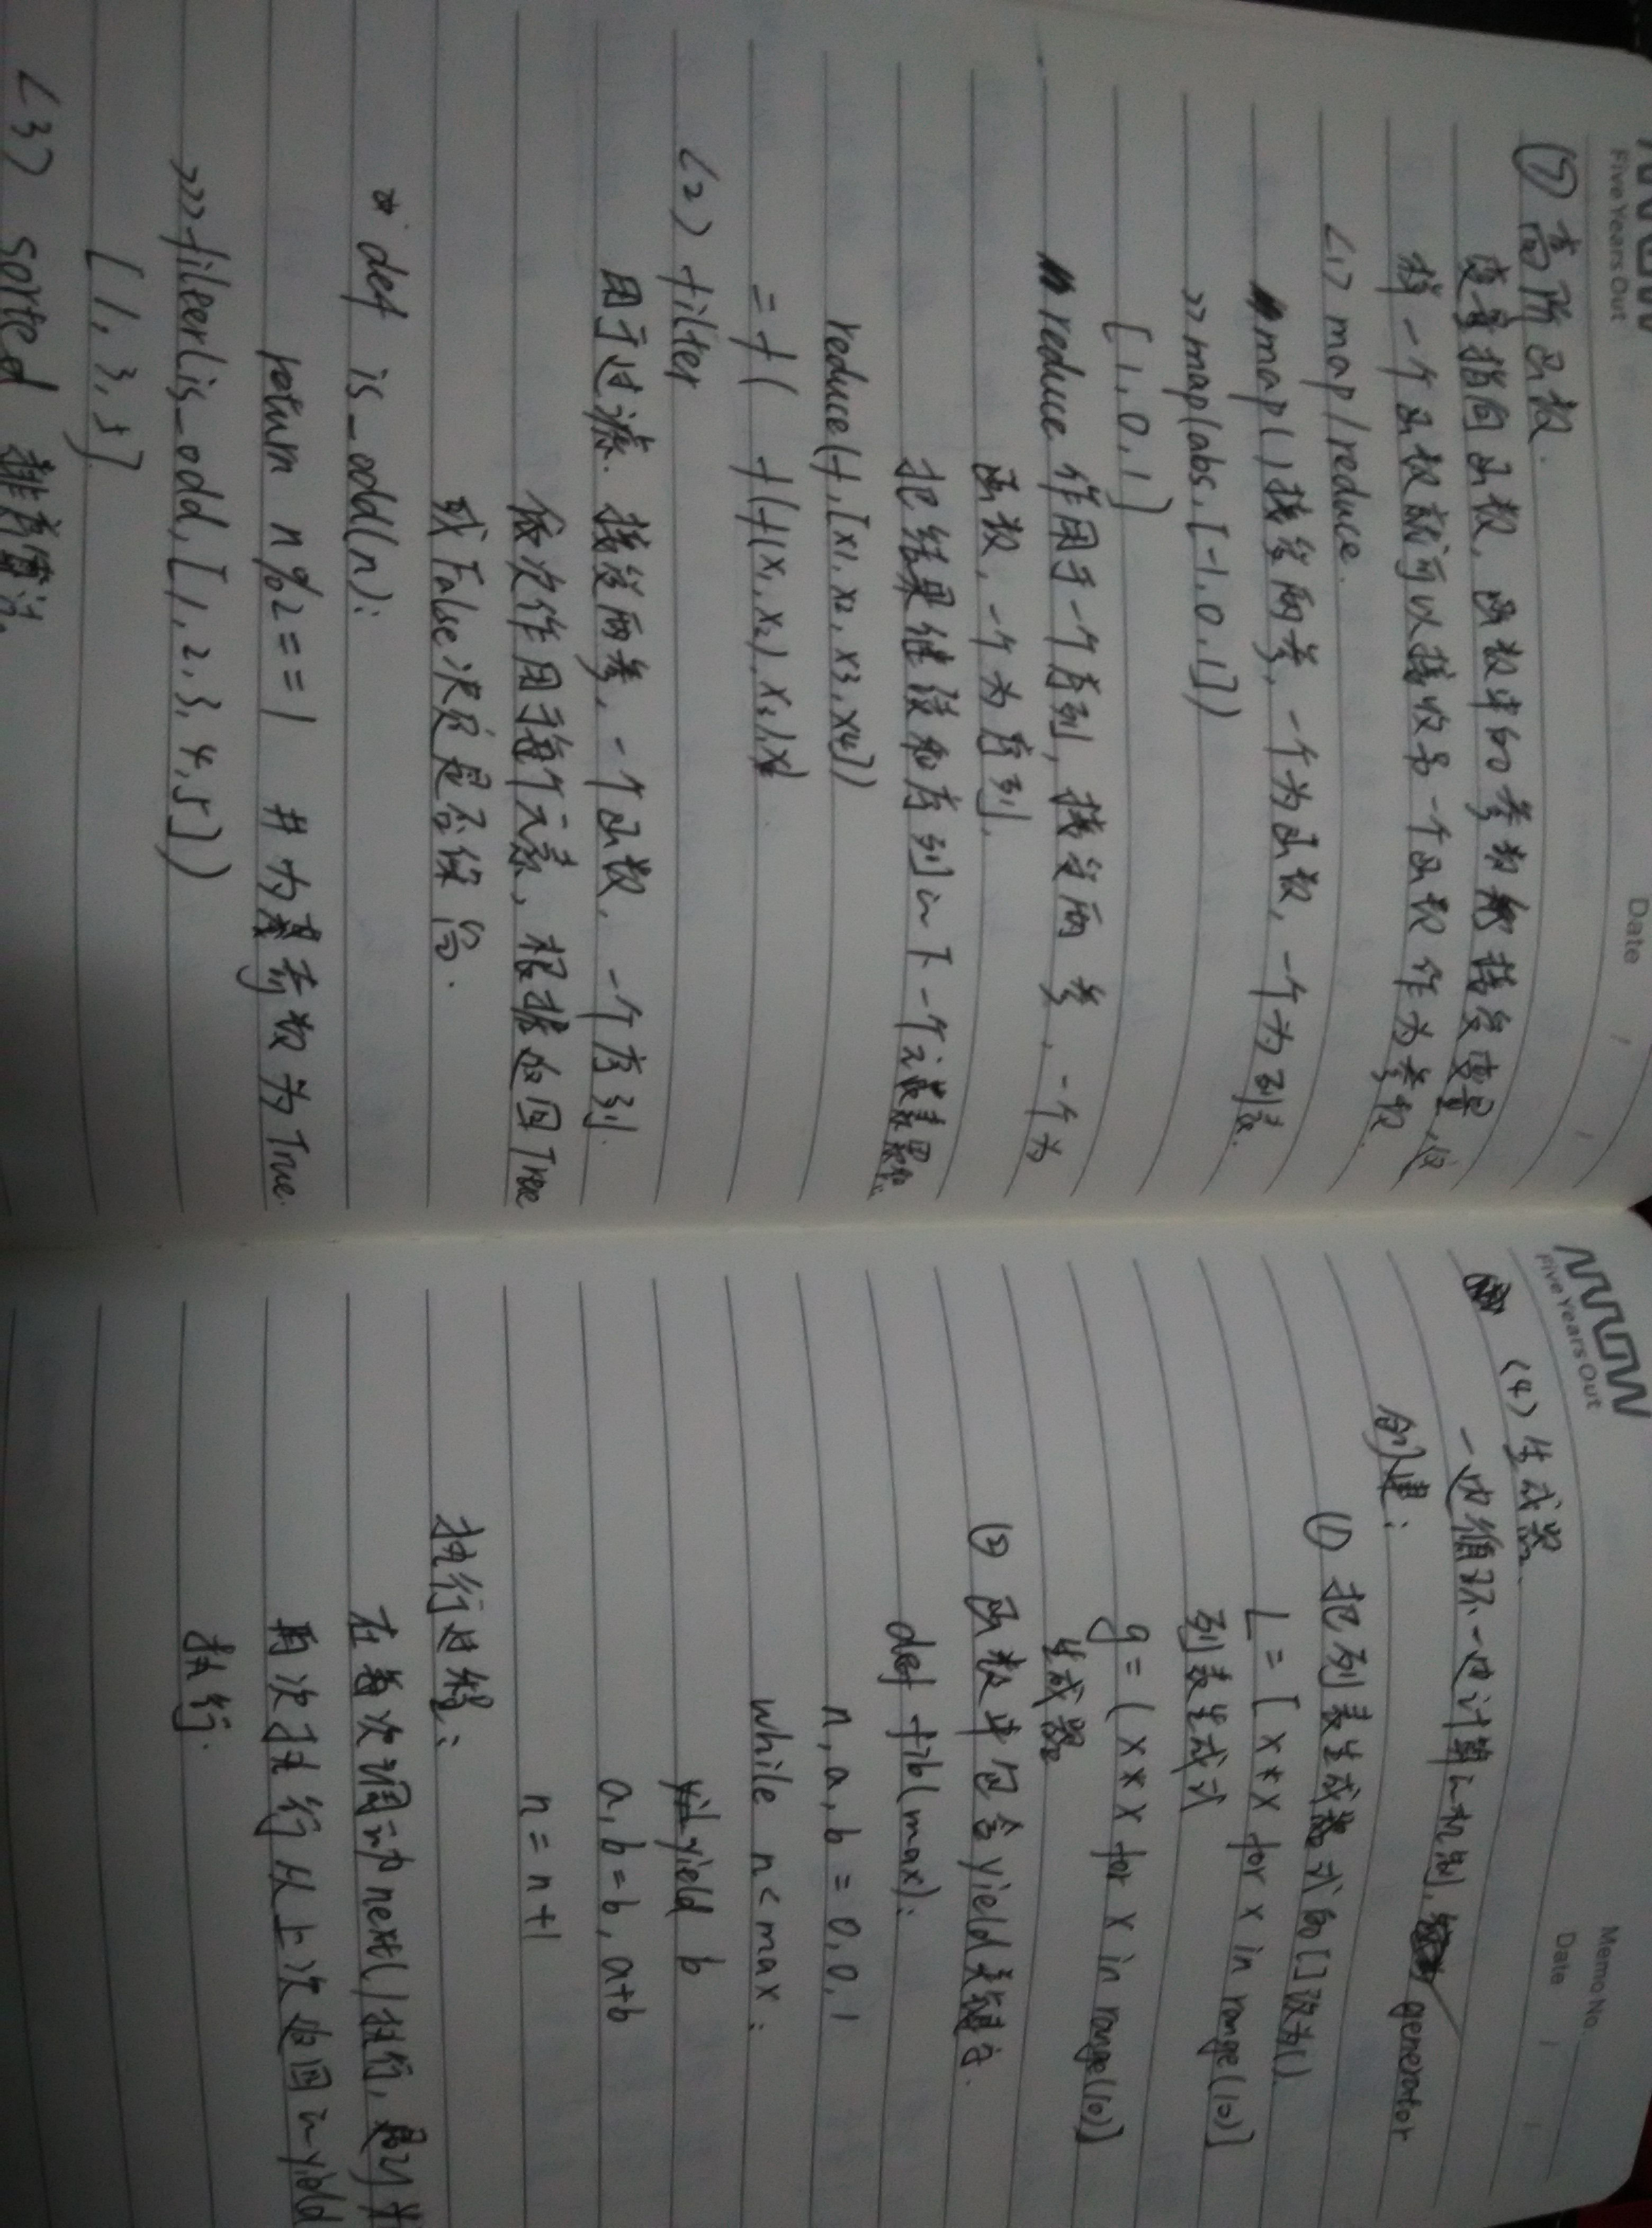 Five Years Out
Date
⑦ 高阶函数.
变量指向函数, 函数中的参数能接受变量, 及
接一个函数就可以接收另一个函数作为参数
<1> map/reduce.
map()接受两参, 一个为函数, 一个为列表.
>>>map(abs,[-1,0,1])
[1,0,1]
reduce 作用于一个序列, 接受两参, 一个为
函数, 一个为序列.
把结果继续和序列的下一个元素累积.
reduce(f,[x1,x2,x3,x4])
= f( f(f(x1,x2),x3),x4
<2> filter
用于过滤. 接受两参, 一个函数, 一个序列.
依次作用于每个元素, 根据返回True
或False决定是否保留.
* def is_odd(n):
return n%2==1 #为奇数为True.
>>>fileer(is_odd,[1,2,3,4,5])
[1,3,5]
<3> sorted 排序算法.
Five Years Out
Memo No.
Date
<4> 生成器.
一边循环一边计算的机制, generator
创建:
① 把列表生成式的[]改为().
L = [x*x for x in range(10)]
列表生成式
g = (x*x for x in range(10)]
生成器
② 函数中包含yield关键字.
def fib(max):
n,a,b = 0,0,1
while n<max:
yield b
a,b=b,a+b
n=n+1
执行过程:
在每次调用next()执行,
再次执行从上次返回的yield
执行.